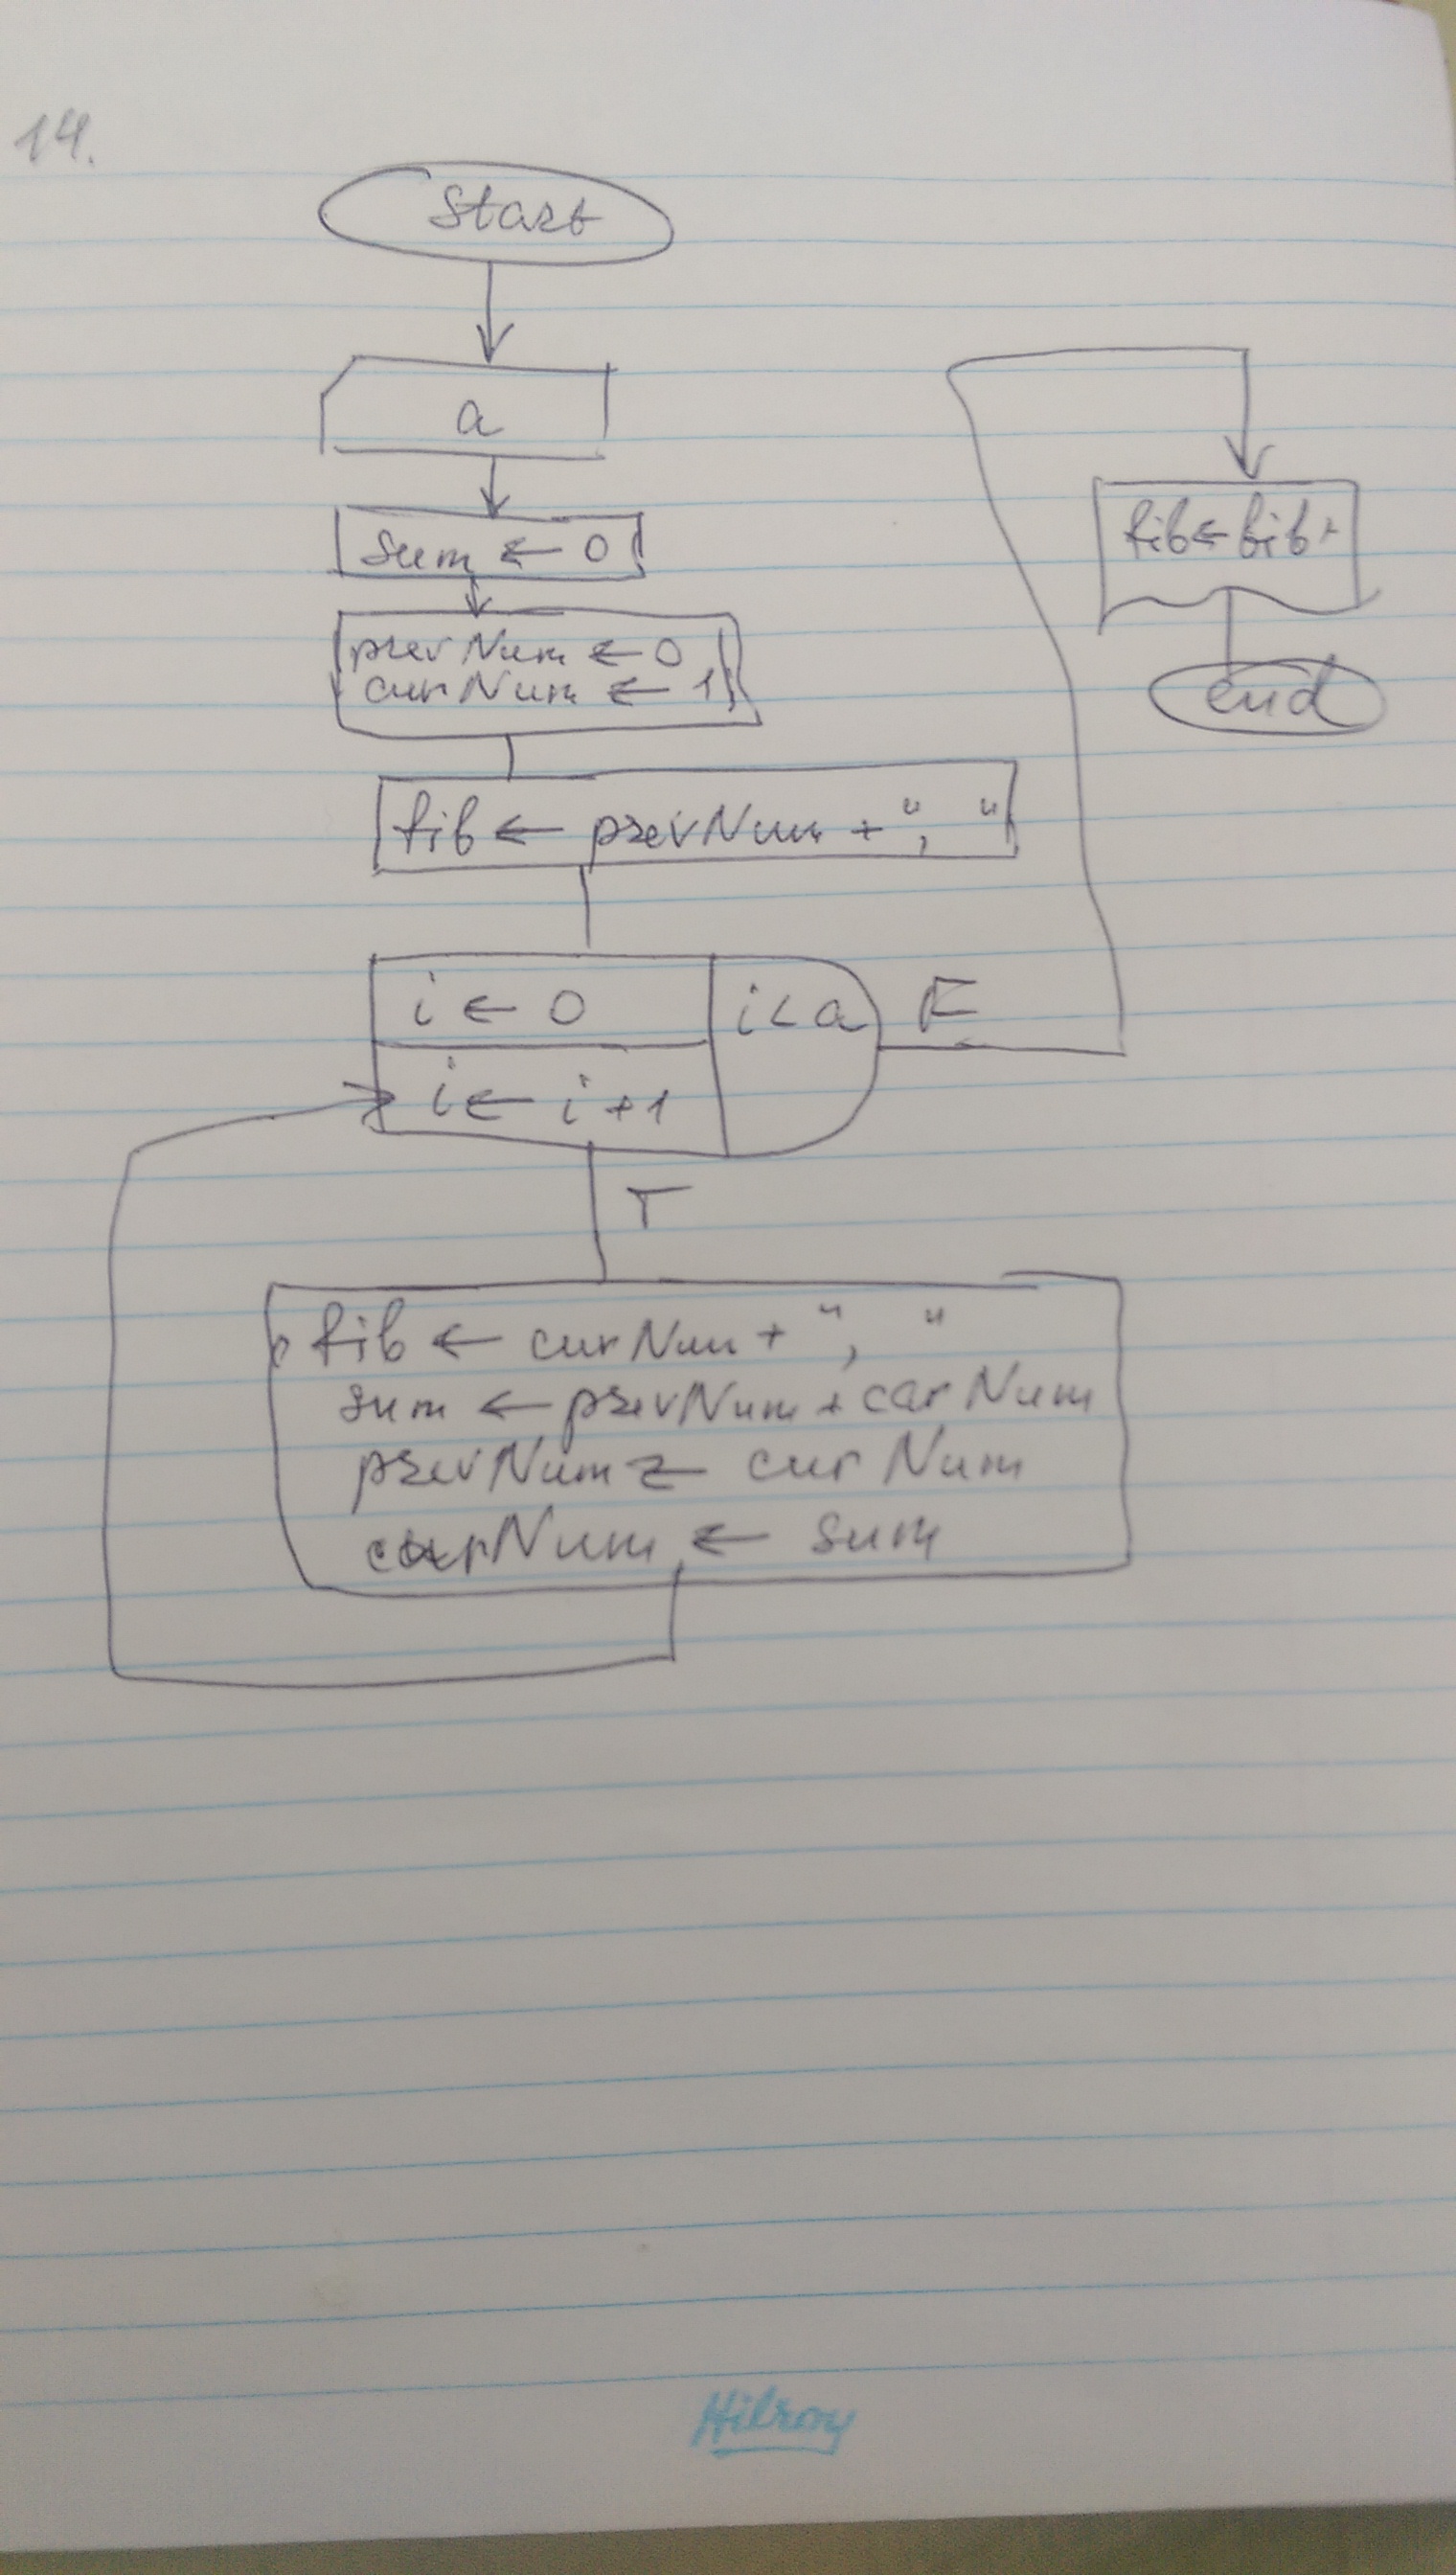 14.
Start
a
sum ← 0
prevNum ← 0
curNum ← 1
fib ← prevNum + ", "
i ← 0
i < a
F
i ← i + 1
T
fib ← curNum + ", "
sum ← prevNum + curNum
prevNum ← curNum
curNum ← sum
fib ← fib +
end
Hilroy